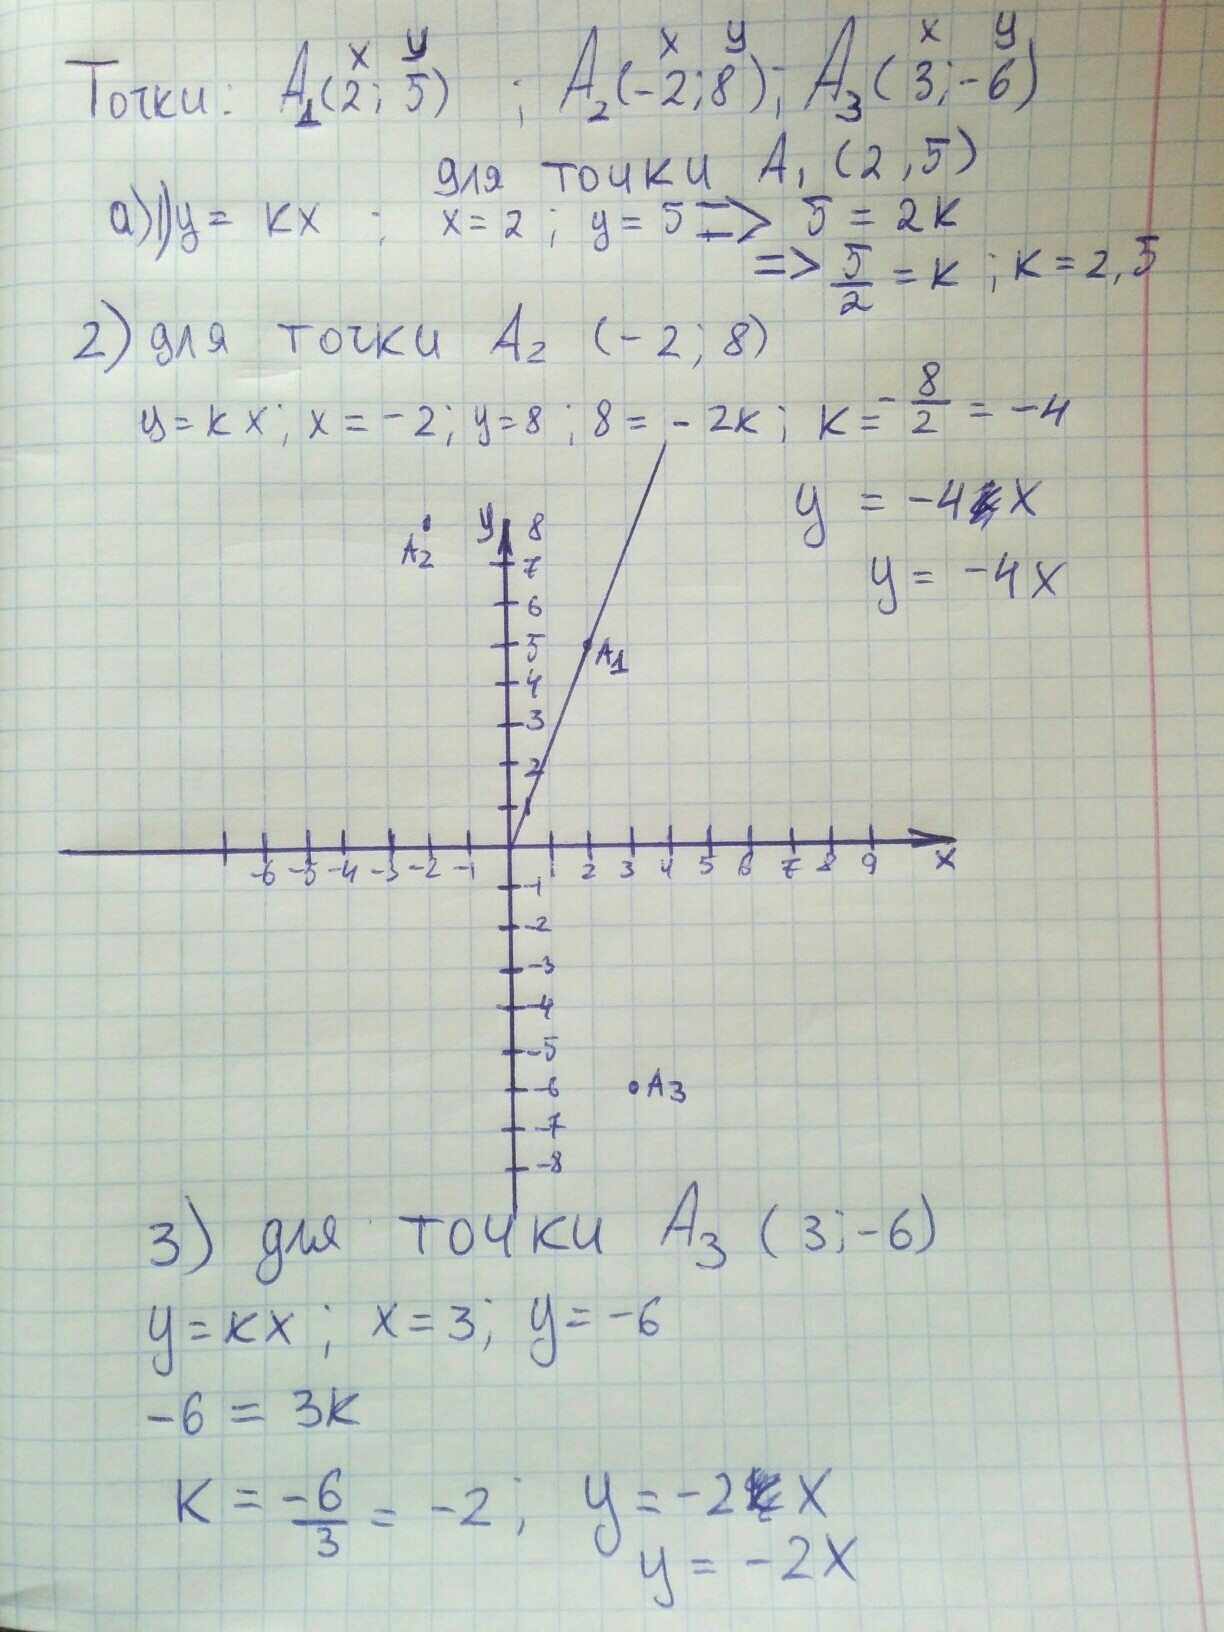 x y x y x y
Точки: A1(2; 5) ; A2(-2;8); A3(3;-6)
для точки A1 (2,5)
а)1) y = kx ; x = 2 ; y = 5 => 5 = 2k
=> 5/2 = k ; k = 2,5
2) для точки A2 (-2; 8)
y = kx; x = -2; y=8; 8 = -2k; k = -8/2 = -4
y = -4 x
y = -4x
A2 y 8
7
6
5 A1
4
3
2
1
-6 -5 -4 -3 -2 -1 1 2 3 4 5 6 7 8 9 x
-1
-2
-3
-4
-5
-6 A3
-7
-8
3) для точки A3 (3;-6)
y = kx ; x = 3; y = -6
-6 = 3k
k = -6/3 = -2; y = -2 x
y = -2x